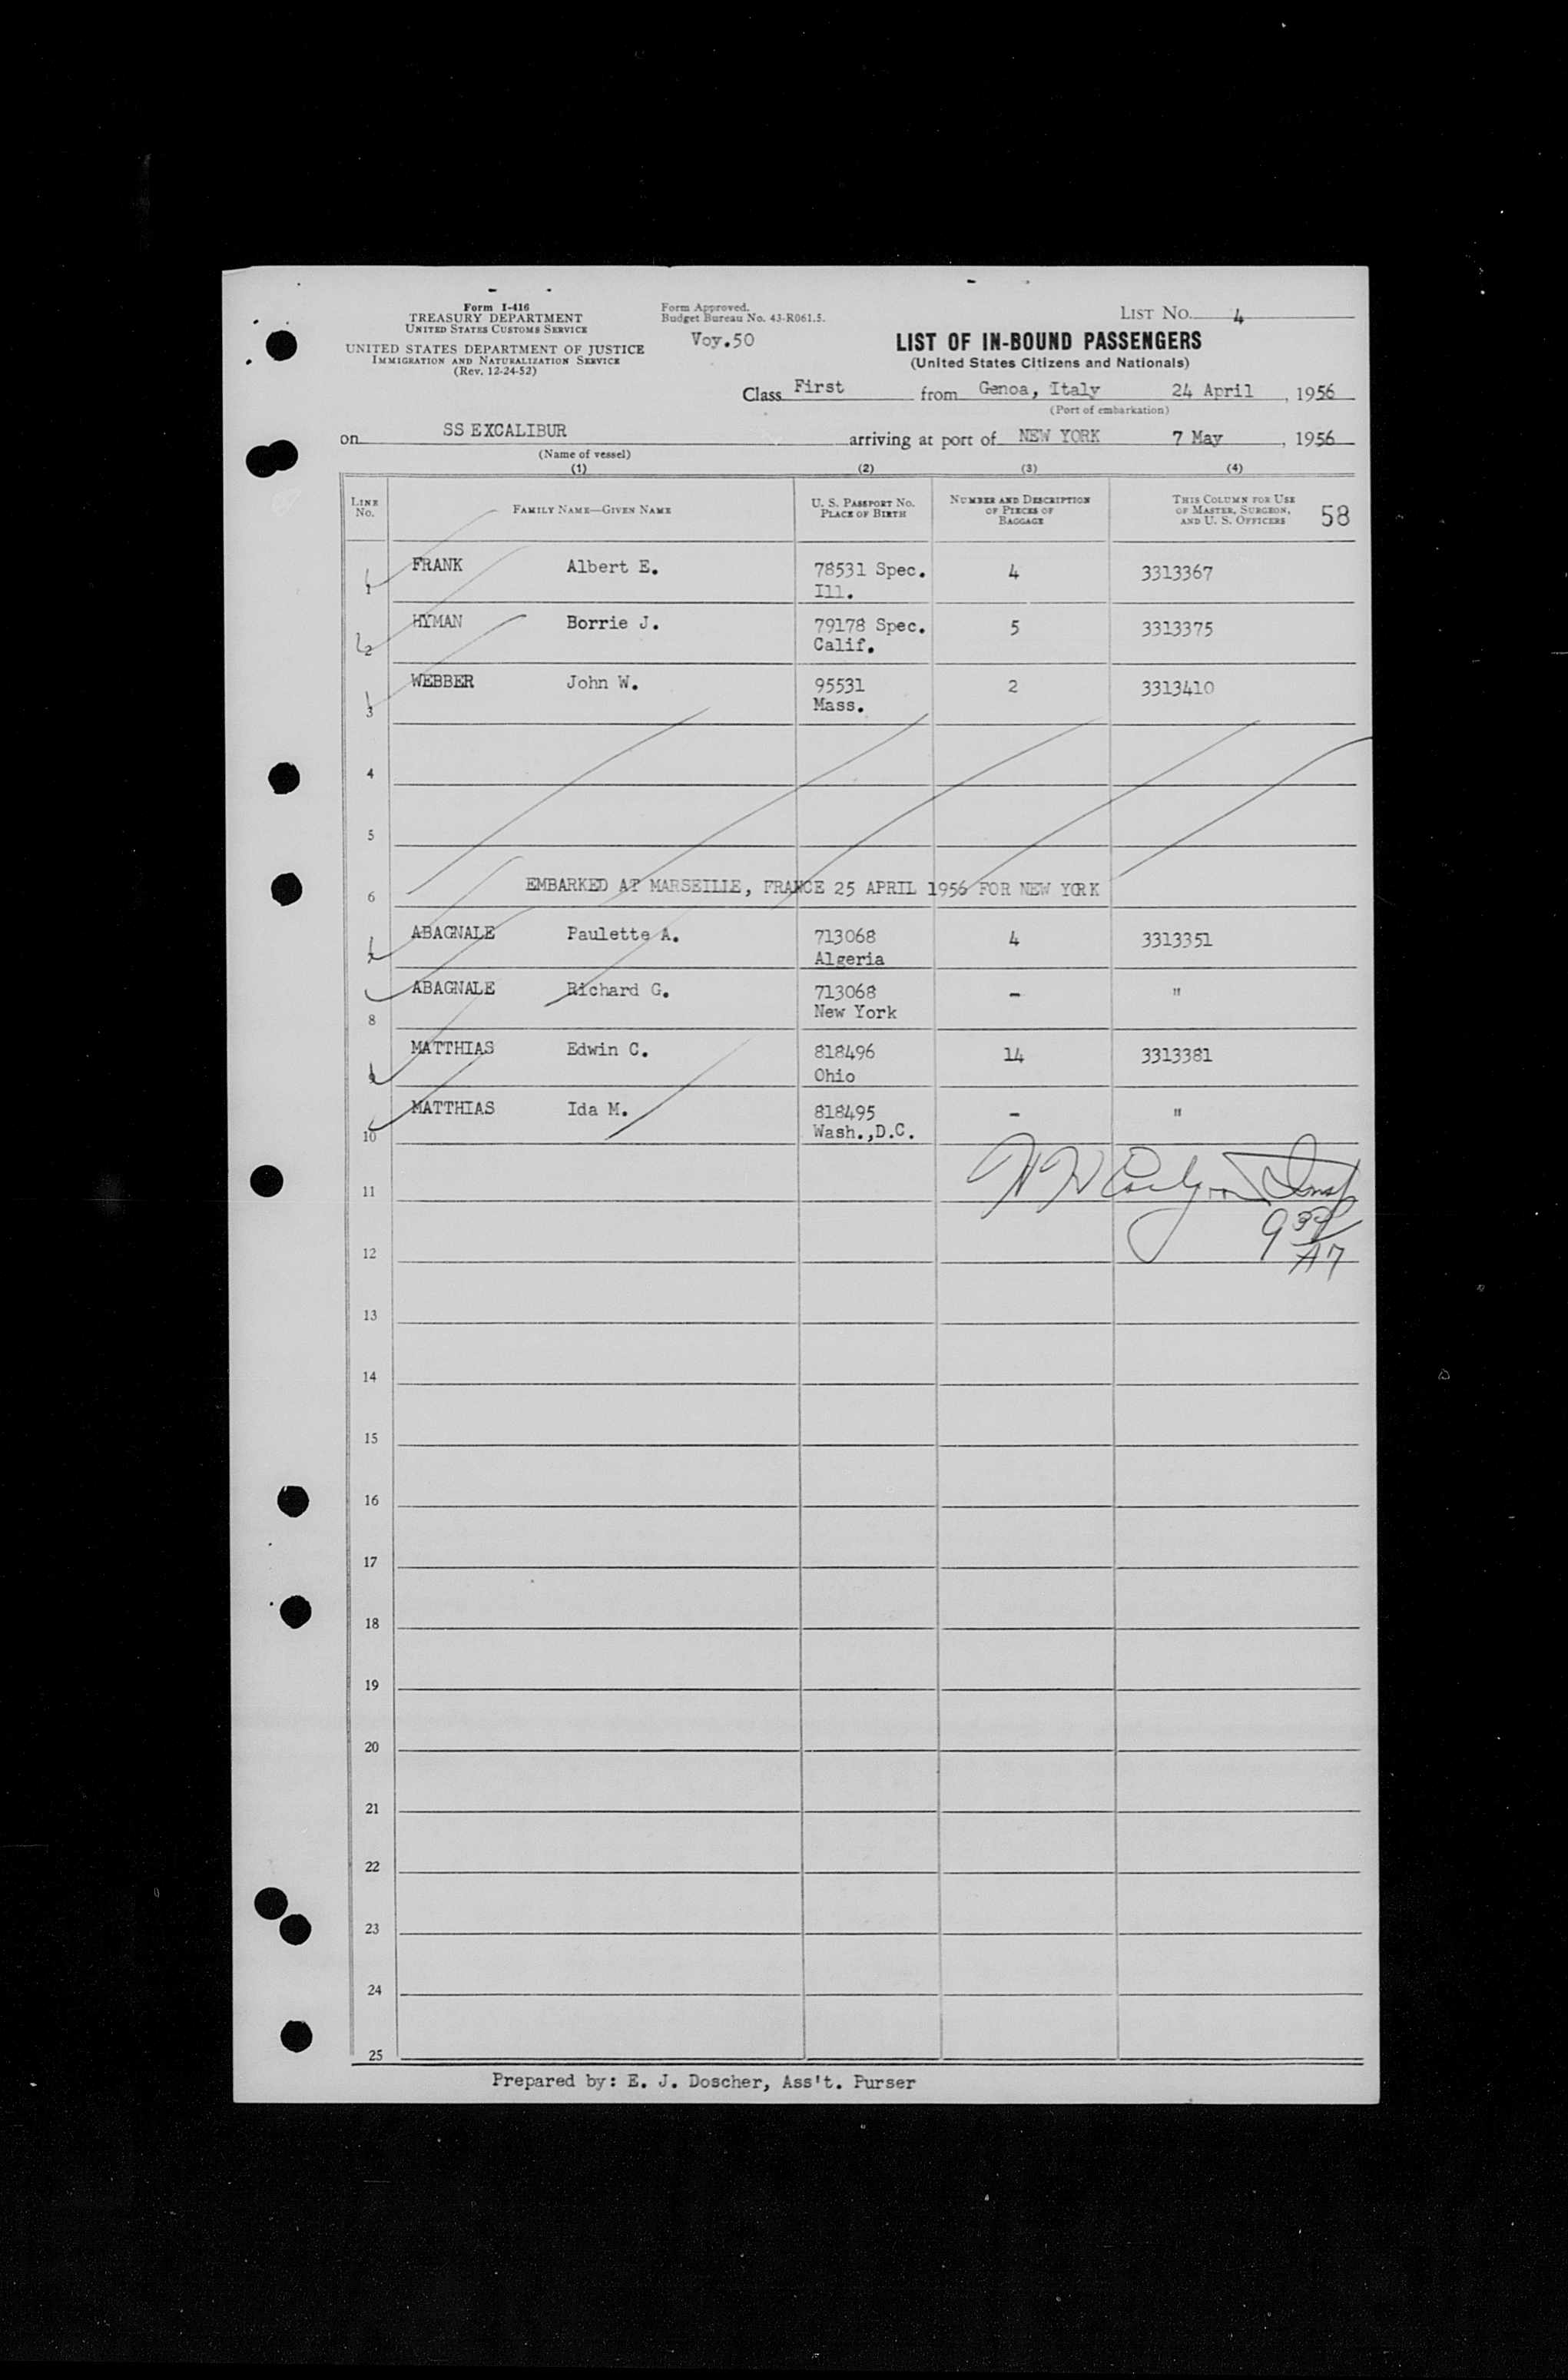 Form I-416
TREASURY DEPARTMENT
UNITED STATES CUSTOMS SERVICE
UNITED STATES DEPARTMENT OF JUSTICE
IMMIGRATION AND NATURALIZATION SERVICE
(Rev. 12-24-52)
Form Approved.
Budget Bureau No. 43-R061.5.
Voy.50
LIST NO. 4
LIST OF IN-BOUND PASSENGERS
(United States Citizens and Nationals)
Class First from Genoa, Italy 24 April, 1956
(Port of embarkation)
on SS EXCALIBUR arriving at port of NEW YORK 7 May, 1956
(Name of vessel)
(1) (2) (3) (4)
LINE NO. FAMILY NAME—GIVEN NAME U. S. PASSPORT NO. PLACE OF BIRTH NUMBER AND DESCRIPTION OF PIECES OF BAGGAGE THIS COLUMN FOR USE OF MASTER, SURGEON, AND U. S. OFFICERS 58
1 FRANK Albert E. 78531 Spec. 4 3313367
Ill.
2 HYMAN Borrie J. 79178 Spec. 5 3313375
Calif.
3 WEBBER John W. 95531 2 3313410
Mass.
4
5
6 EMBARKED AT MARSEILLE, FRANCE 25 APRIL 1956 FOR NEW YORK
ABAGNALE Paulette A. 713068 4 3313351
Algeria
8 ABAGNALE Richard G. 713068 - "
New York
9 MATTHIAS Edwin C. 818496 14 3313381
Ohio
10 MATTHIAS Ida M. 818495 - "
Wash.,D.C.
11
12
13
14
15
16
17
18
19
20
21
22
23
24
25
Prepared by: E. J. Doscher, Ass't. Purser